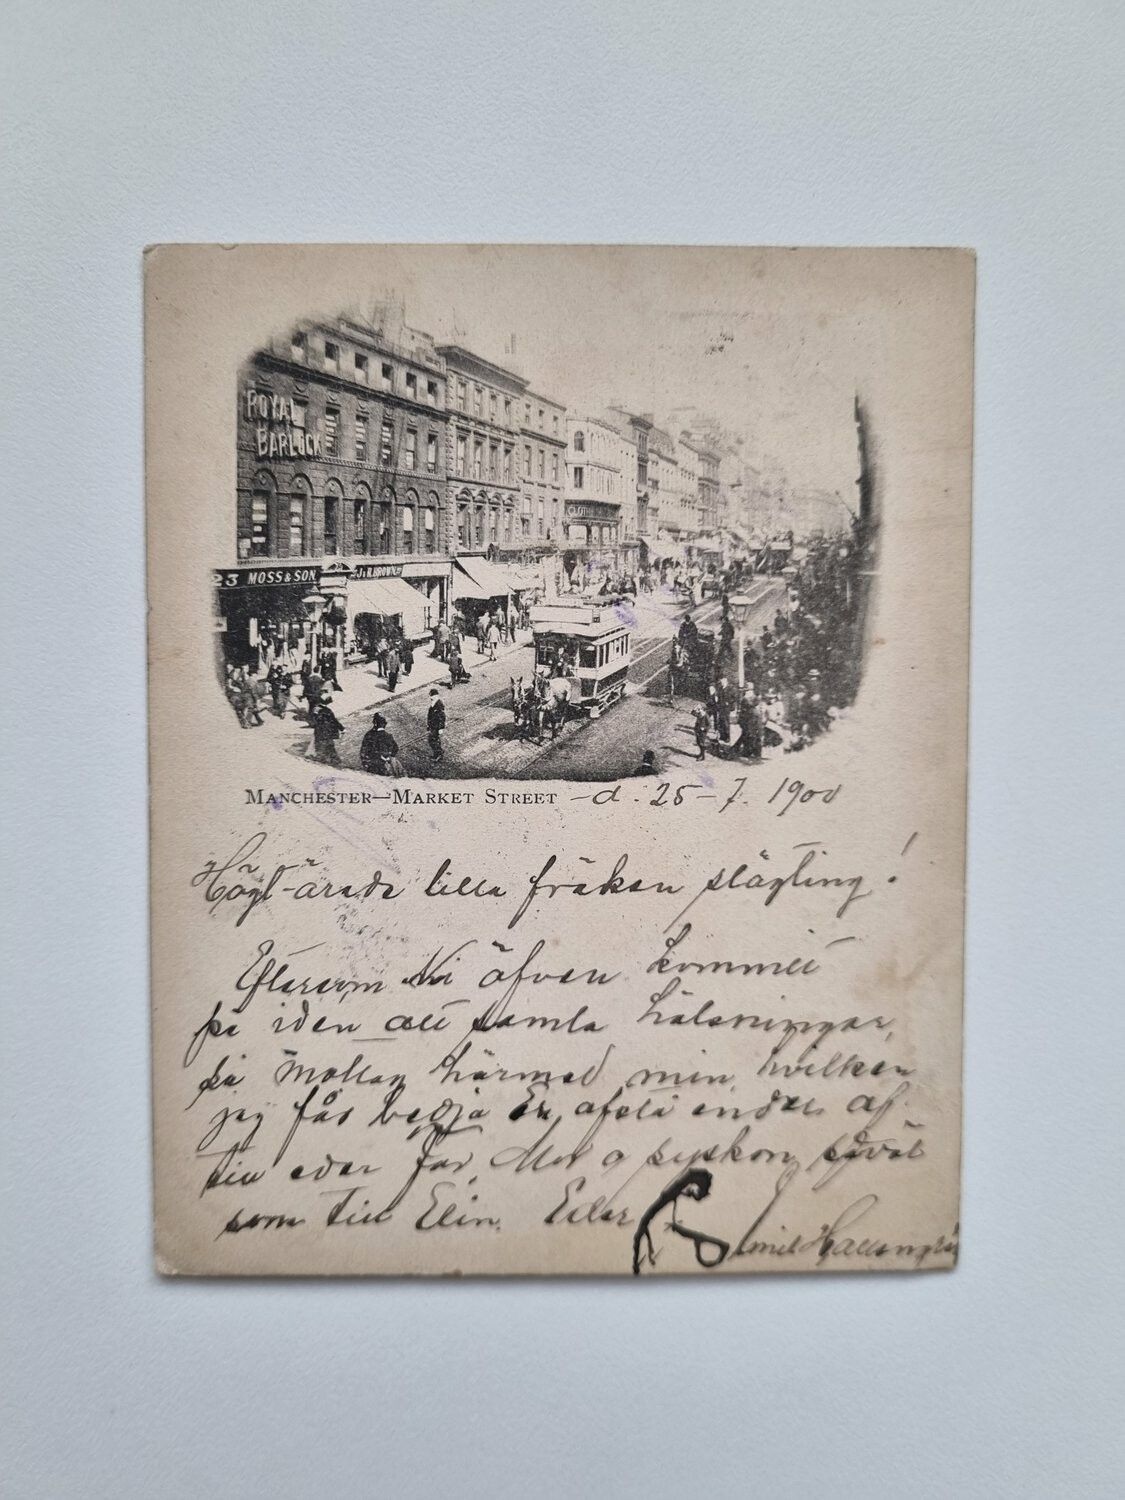 ROYAL
BARLOCK
23 MOSS & SON
J. & R. BROWN
MANCHESTER—MARKET STREET – d. 25 – 7. 1900
Högt-ärade lilla fröken slägting!
Eftersom Ni äfven kommit
på iden att samla hälsningar,
så mottag härmed min, hvilken
jag får bedja Er, afslå endas af
till eder Far, Mor o syskon såväl
som till Elin. Eder Emil